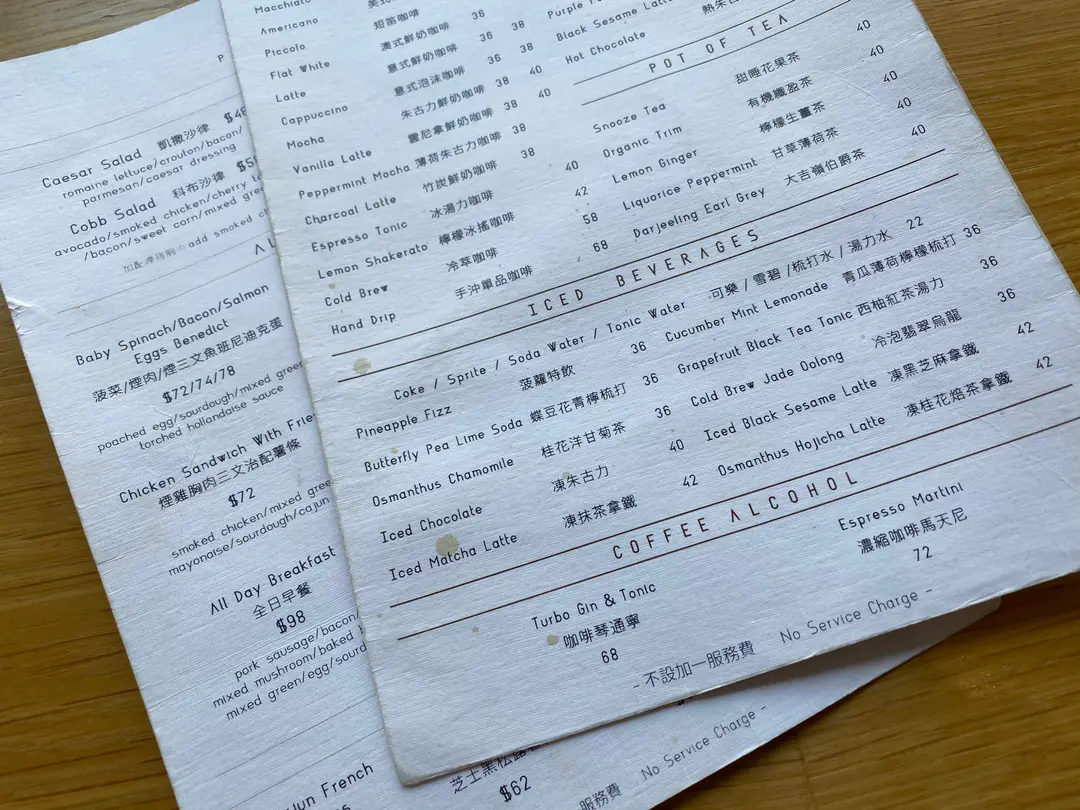 P
Caesar Salad 凱撒沙律 $48
romaine lettuce/crouton/bacon/
parmesan/caesar dressing
Cobb Salad 科布沙律
avocado/smoked chicken/cherry
/bacon/sweet corn/mixed green
add smoked
Baby Spinach/Bacon/Salmon
Eggs Benedict
菠菜/煙肉/煙三文魚班尼迪克蛋
$72/74/78
poached egg/sourdough/mixed green
torched hollandaise sauce
Chicken Sandwich With Frie
煙雞胸肉三文治配薯條
$72
smoked chicken/mixed gree
mayonaise/sourdough/cajun
All Day Breakfast
全日早餐
$98
pork sausage/bacon/
mixed mushroom/baked
mixed green/egg/sourd
un French
$62
服務費 No Service Charge -
Macchiato
Americano
Piccolo 短笛咖啡
Flat White 澳式鮮奶咖啡 36
Latte 意式鮮奶咖啡 36
Cappuccino 意式泡沫咖啡 36 38
Mocha 朱古力鮮奶咖啡 38 40
Vanilla Latte 雲尼拿鮮奶咖啡 38 40
Peppermint Mocha 薄荷朱古力咖啡 38
Charcoal Latte 竹炭鮮奶咖啡 38
Espresso Tonic 冰湯力咖啡 40
Lemon Shakerato 檸檬冰搖咖啡 42
Cold Brew 冷萃咖啡 58
Hand Drip 手沖單品咖啡 68
Purple
Black Sesame Latte
Hot Chocolate
POT OF TEA
Snooze Tea 甜睡花果茶 40
Organic Trim 有機纖盈茶 40
Lemon Ginger 檸檬生薑茶 40
Liquorice Peppermint 甘草薄荷茶 40
Darjeeling Earl Grey 大吉嶺伯爵茶 40
ICED BEVERAGES
Coke / Sprite / Soda Water / Tonic Water 可樂 / 雪碧 /梳打水 / 湯力水 22
Pineapple Fizz 菠蘿特飲 36
Butterfly Pea Lime Soda 蝶豆花青檸梳打 36
Osmanthus Chamomile 桂花洋甘菊茶 36
Iced Chocolate 凍朱古力 40
Iced Matcha Latte 凍抹茶拿鐵 42
Cucumber Mint Lemonade 青瓜薄荷檸檬梳打 36
Grapefruit Black Tea Tonic 西柚紅茶湯力 36
Cold Brew Jade Oolong 冷泡翡翠烏龍 36
Iced Black Sesame Latte 凍黑芝麻拿鐵 42
Osmanthus Hojicha Latte 凍桂花焙茶拿鐵 42
COFFEE ALCOHOL
Turbo Gin & Tonic
咖啡琴通寧
68
Espresso Martini
濃縮咖啡馬天尼
72
- 不設加一服務費 No Service Charge -